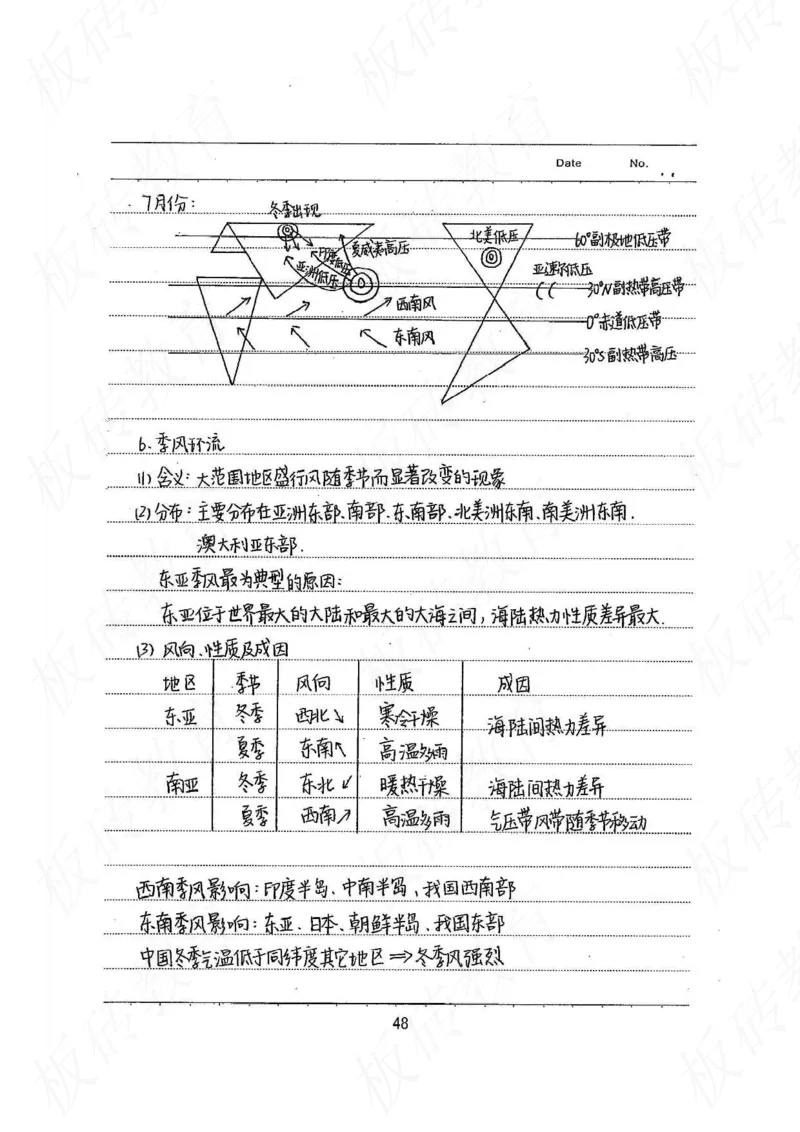 Date No.
7月份：
冬季出现
北美低压
60°副极地低压带
夏威夷高压
印度低压
亚洲低压
亚速尔低压
30°N副热带高压带
西南风
0°赤道低压带
东南风
30°S副热带高压
6. 季风环流
(1) 含义：大范围地区盛行风随季节而显著改变的现象
(2) 分布：主要分布在亚洲东部、南部、东南部、北美洲东南、南美洲东南、
澳大利亚东部.
东亚季风最为典型的原因：
东亚位于世界最大的大陆和最大的大海之间，海陆热力性质差异最大.
(3) 风向、性质及成因
地区 季节 风向 性质 成因
东亚 冬季 西北↘ 寒冷干燥 海陆间热力差异
夏季 东南↖ 高温多雨
南亚 冬季 东北↙ 暖热干燥 海陆间热力差异
夏季 西南↗ 高温多雨 气压带风带随季节移动
西南季风影响：印度半岛、中南半岛、我国西南部
东南季风影响：东亚、日本、朝鲜半岛、我国东部
中国冬季气温低于同纬度其它地区⇒冬季风强烈
48
板砖教育